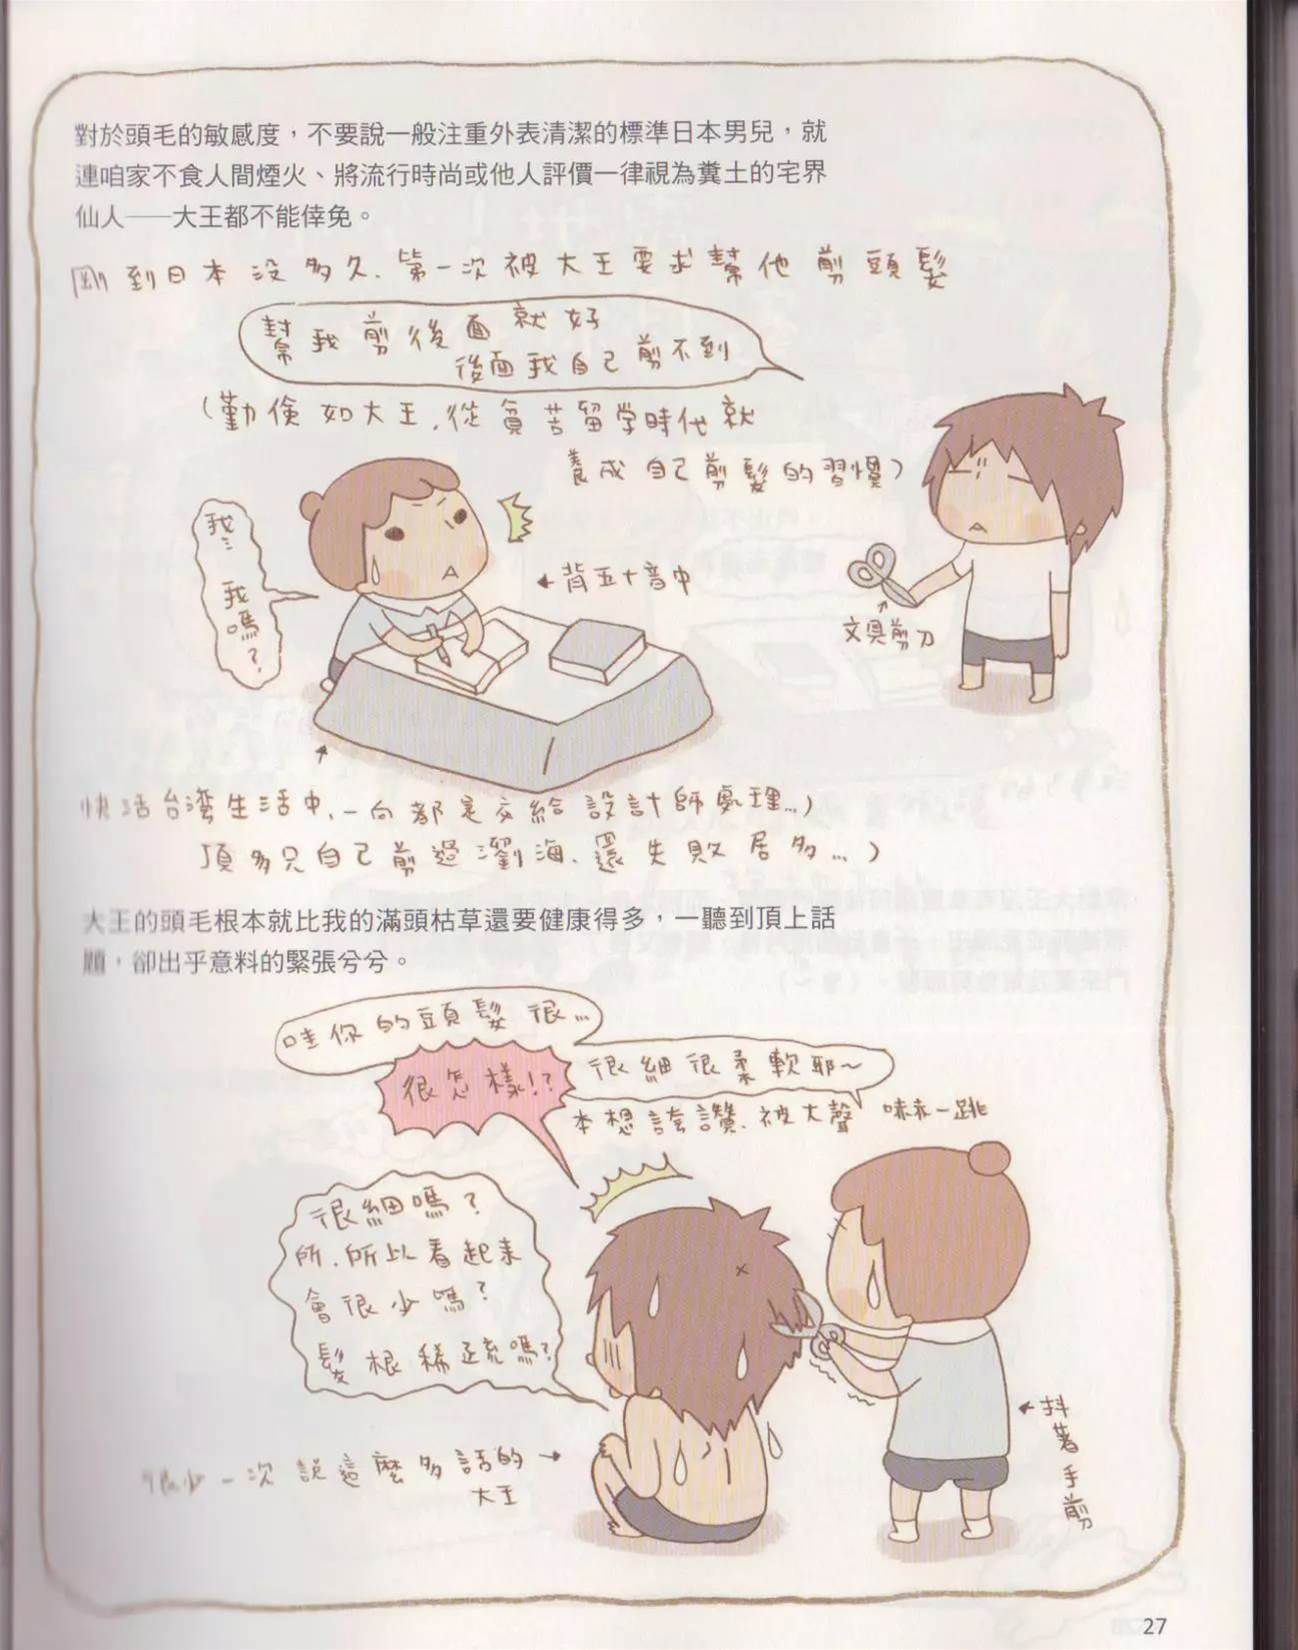 對於頭毛的敏感度，不要說一般注重外表清潔的標準日本男兒，就
連咱家不食人間煙火、將流行時尚或他人評價一律視為糞土的宅界
仙人——大王都不能倖免。
剛到日本沒多久，第一次被大王要求幫他剪頭髮
幫我剪後面就好
後面我自己剪不到
（勤儉如大王，從貧苦留学時代就
養成自己剪髮的習慣）
我…
我嗎？
←背五十音中
文具剪刀
快活台灣生活中，一向都是交給設計師處理…）
頂多只自己剪過瀏海，還失敗居多…）
大王的頭毛根本就比我的滿頭枯草還要健康得多，一聽到頂上話
題，卻出乎意料的緊張兮兮。
哇你的頭髮很…
很怎樣!?
很細很柔軟耶～
本想誇讚，被大聲嚇一跳
很細嗎？
所，所以看起來
會很少嗎？
髮根稀疏嗎？
很少一次說這麼多話的→
大王
←抖著手剪
27